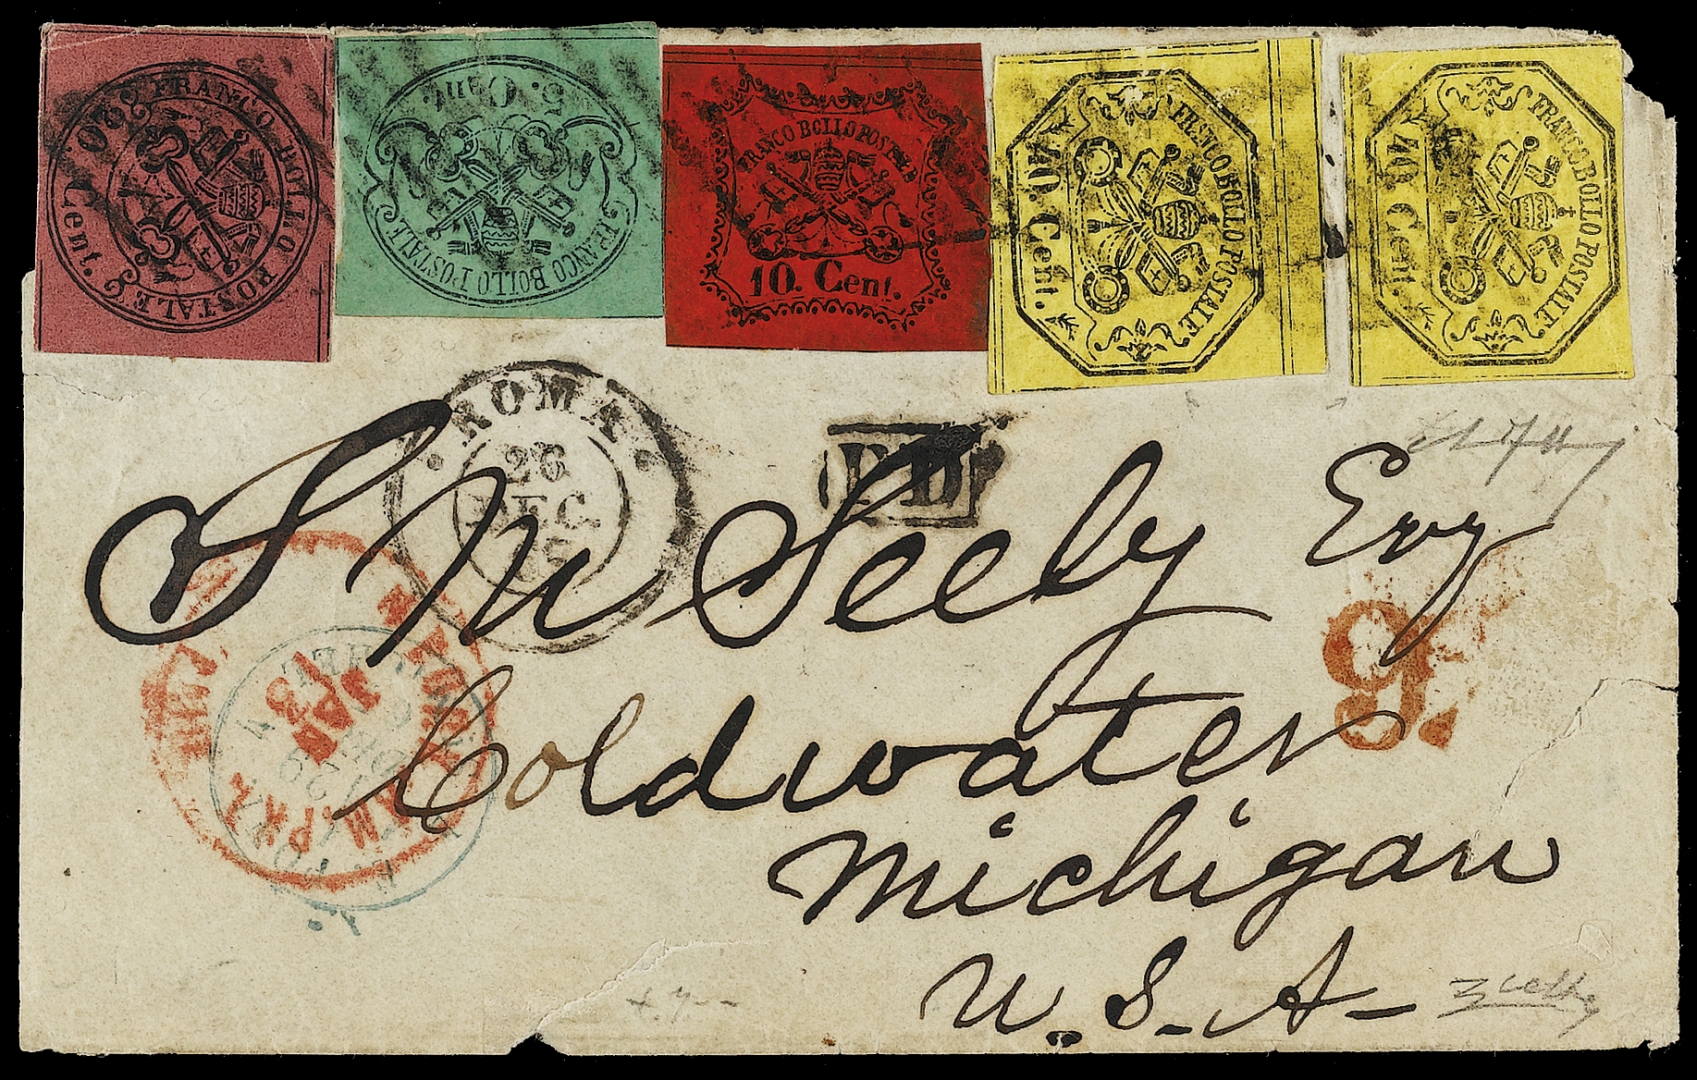 FRANCO BOLLO POSTALE
20 Cent.
5. Cent.
FRANCO BOLLO POSTALE
FRANCO BOLLO POSTALE
10. Cent.
FRANCO BOLLO POSTALE
40. Cent.
FRANCO BOLLO POSTALE
40 Cent.
ROMA
26
DEC.
PD
S M Seely Esq
9.
JAN
13
Coldwater
Michigan
U.S.A